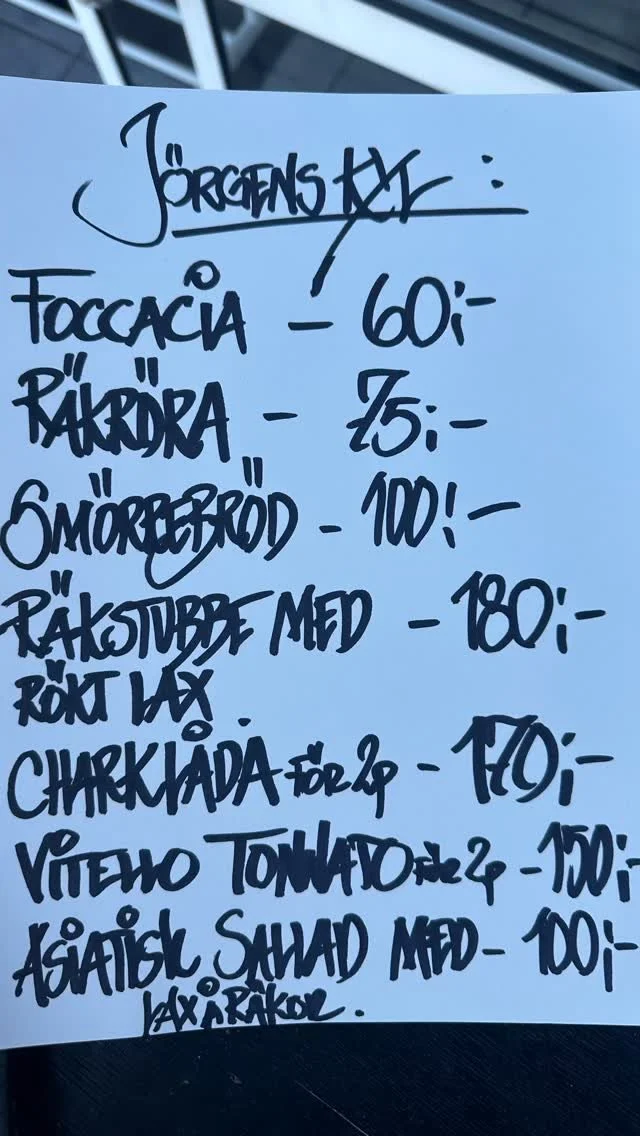 JÖRGENS KYL :
FOCCACIA - 60;-
RÄKRÖRA - 75;-
SMÖRREBRÖD - 100!-
RÄKSTUBBE MED - 180;-
RÖKT LAX.
CHARKLÅDA FÖR 2p - 170;-
VITELLO TONNATO FÖR 2p - 150;-
ASIATISK SALLAD MED - 100;-
LAX Å RÄKOR.